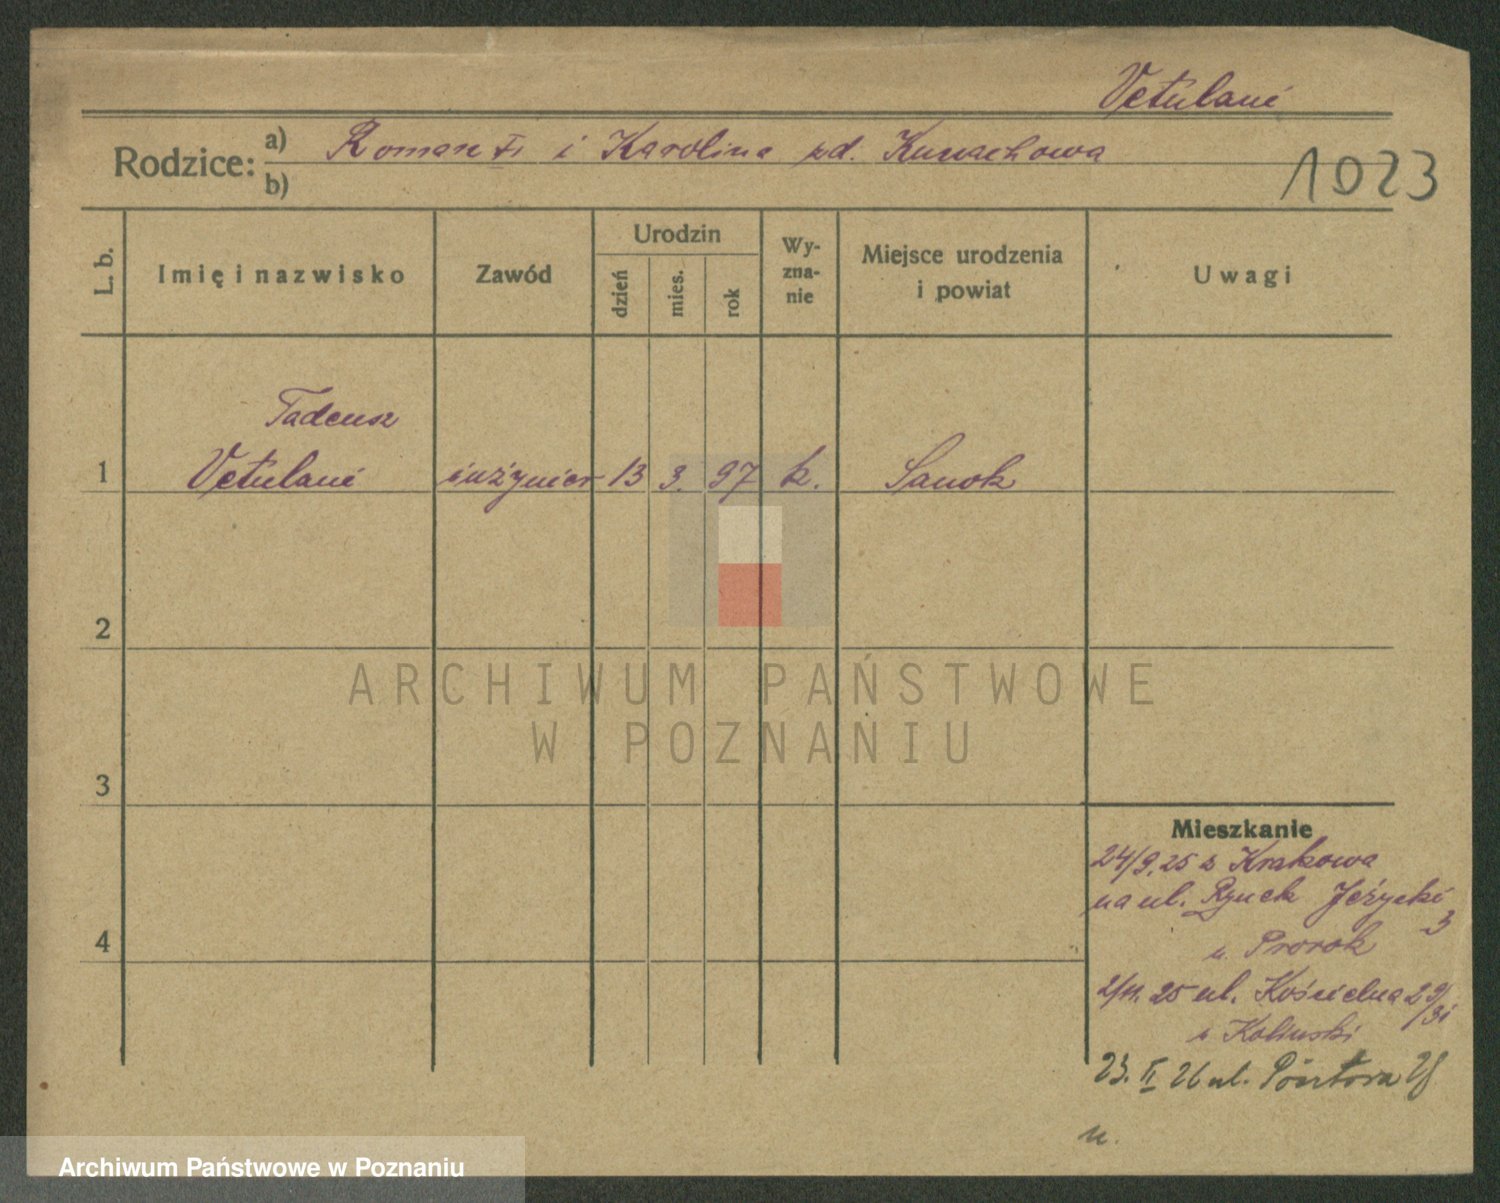 Vetulani
Rodzice: a) Roman i Karolina zd. Kunachowa
b)
1023
L. b.
Imię i nazwisko
Zawód
Urodzin
dzień
mies.
rok
Wy-
zna-
nie
Miejsce urodzenia
i powiat
Uwagi
Tadeusz
1 Vetulani inżynier 13 3. 97 k. Sanok
2
ARCHIWUM PAŃSTWOWE
W POZNANIU
3
Mieszkanie
24/9.25 z Krakowa
na ul. Rynek Jeżycki
3
u Prorok
4
2/11.25 ul. Kościelna 29/31
u
23. II 26 ul. 28
u.
Archiwum Państwowe w Poznaniu